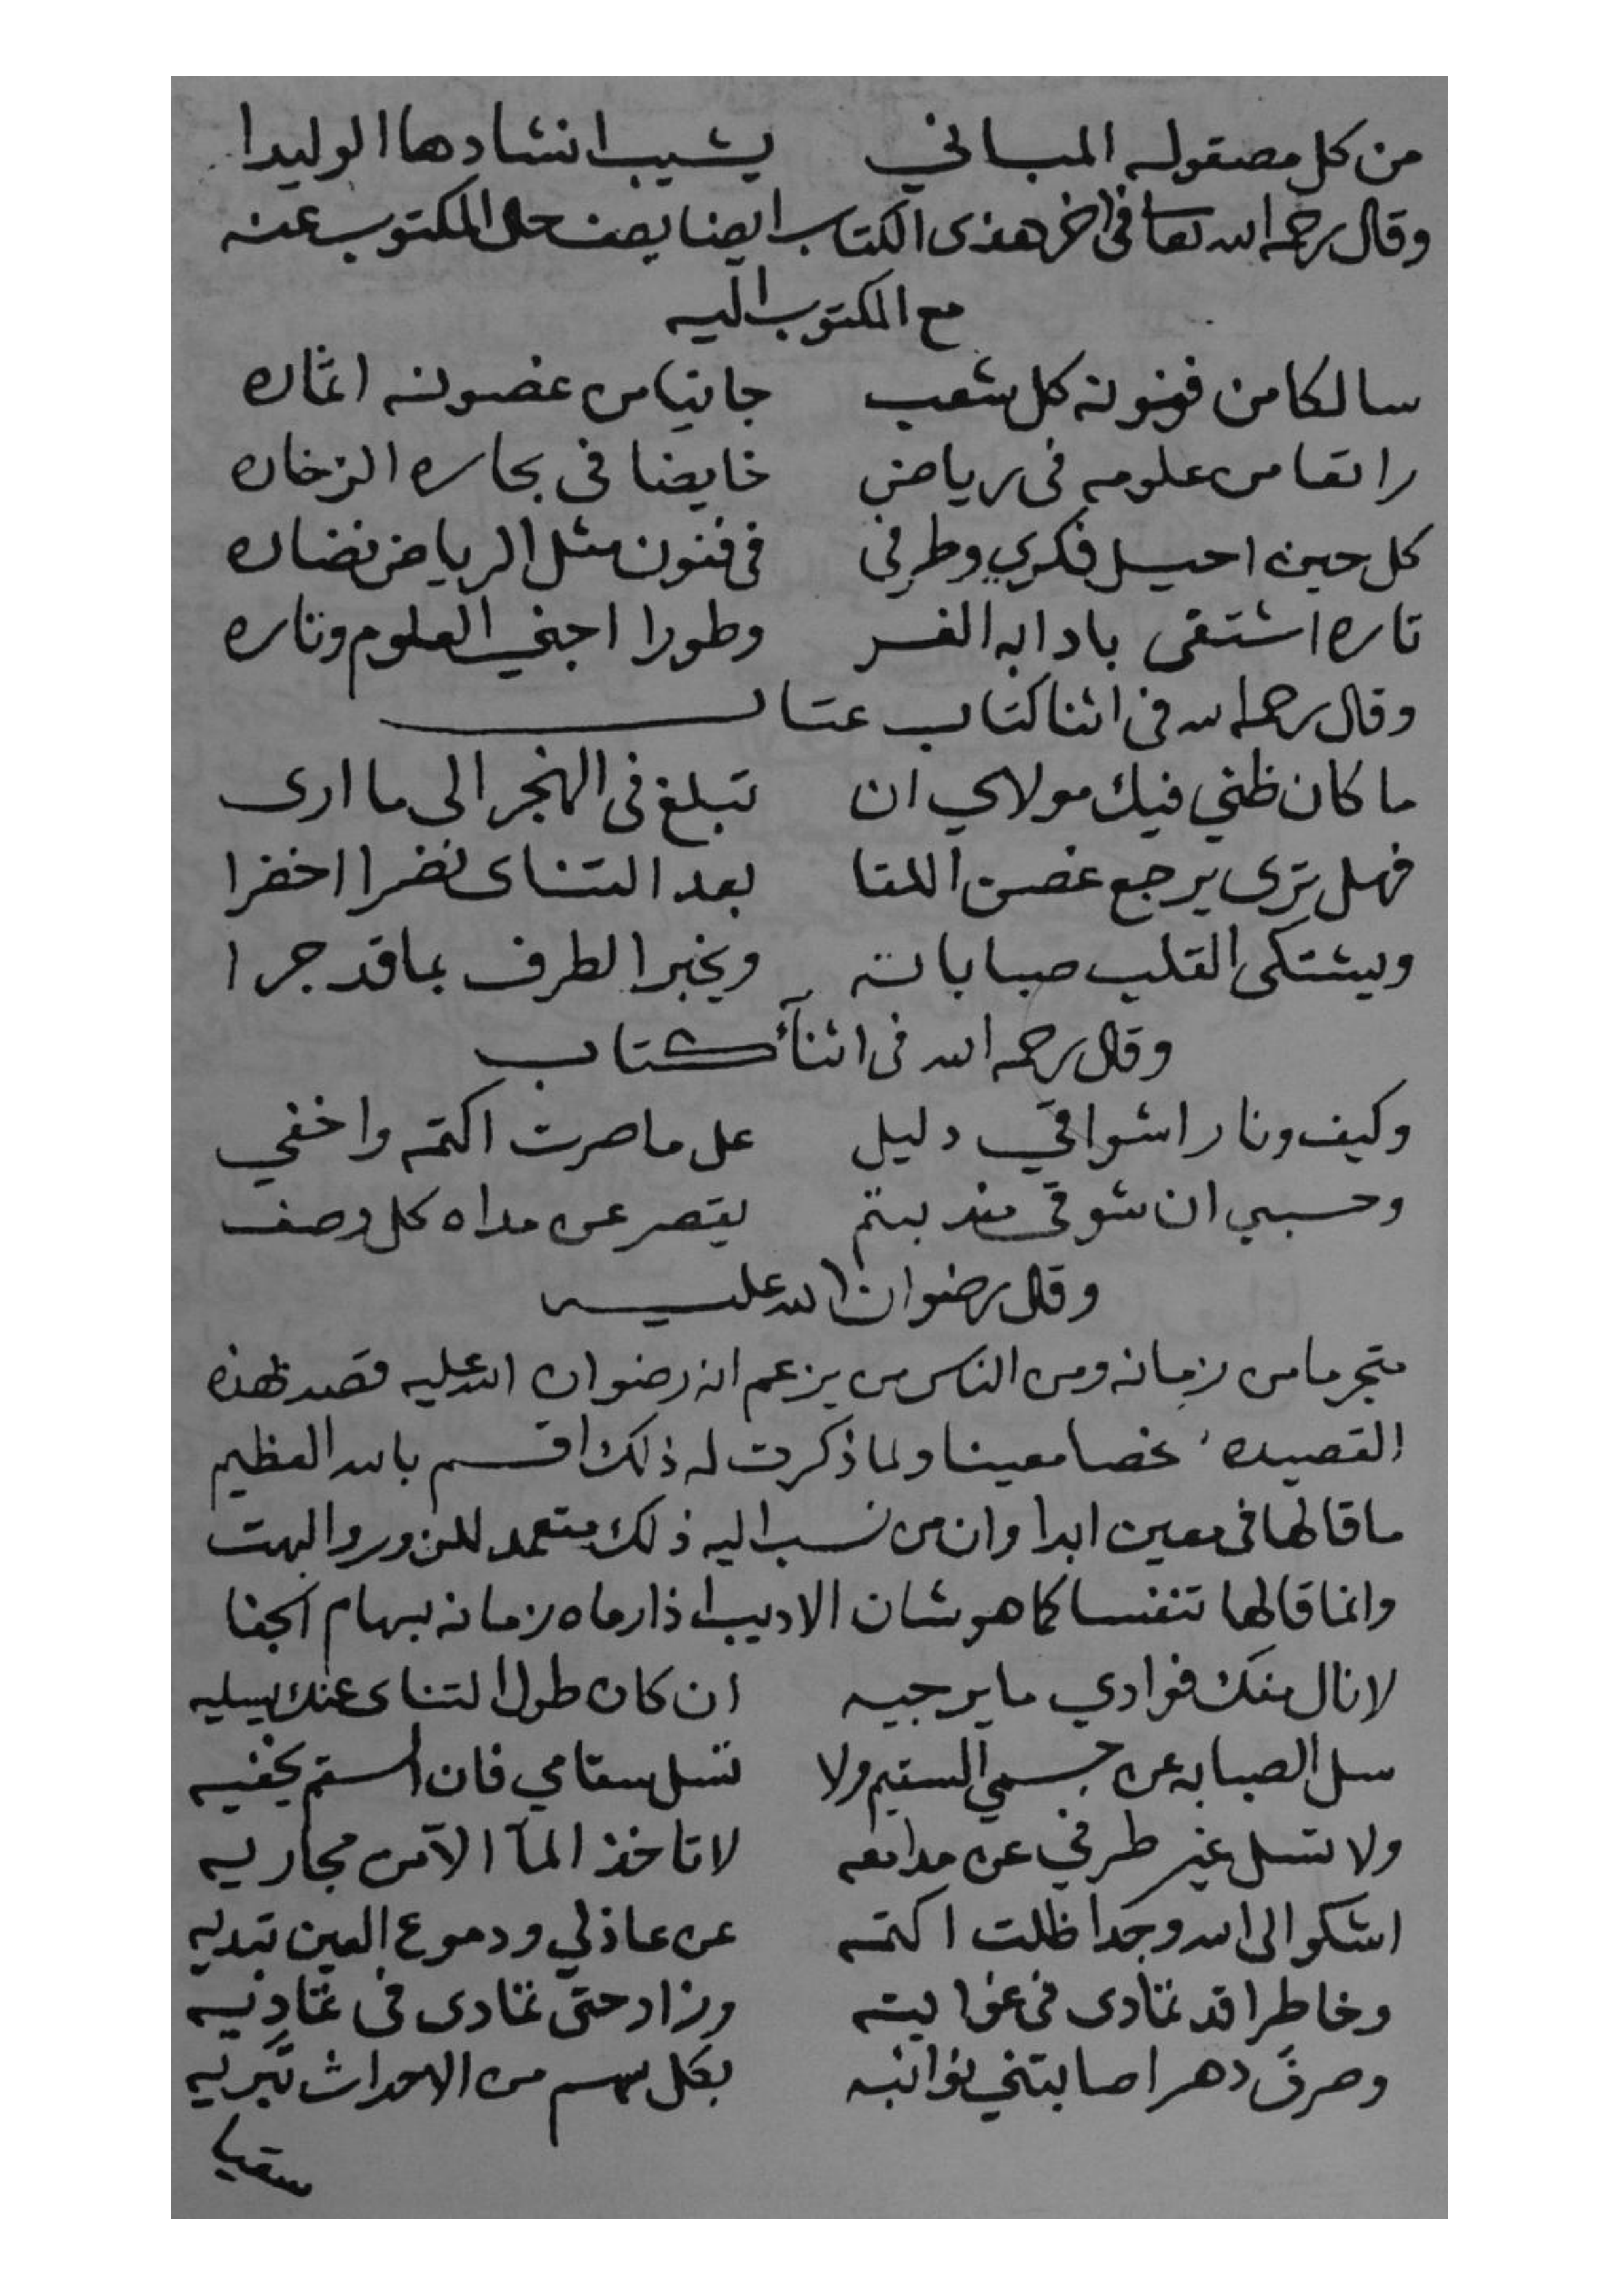 من كل مصقوله المباني يشيب انشادها الوليدا
وقال رحمه الله تعا فى اخر هذى الكتاب ايضا يصف حال المكتوب عنه
مع المكتوب اليه
سالكا من فنونه كل شعب جانيا من غصونه اثماره
راتعا من علومه فى رياض خايضا فى بحاره الزخاره
كل حين احيل فكري وطرفي فى فنون مثل الرياض نضاره
تاره اشتقى بادابه الغر وطورا اجني العلوم وتاره
وقال رحمه الله فى اثنا كتاب عتاب
ما كان ظني فيك مولاي ان تبلغ فى الهجر الى ما ارى
فهل ترى يرجع غصن اللقا بعد التناى نضرا اخضرا
ويشتكى القلب صباباته ويخبر الطرف بما قد جرا
وقال رحمه الله فى اثنآء كتاب
وكيف ونار اشواقي دليل على ما صرت اكتمه واخفي
وحسبي ان شوقي منذ بنتم يقصر عن مداه كل وصف
وقال رضوان الله عليه
متجرما من زمانه ومن الناس من يزعم انه رضوان الله عليه قصد بهذه
القصيده شخصا معينا ولما ذكرت له ذلك اقسم بالله العظيم
ما قالها فى معين ابدا وان من نسب اليه ذلك متعمد للزور والبهت
وانما قالها تنفسا كما هو شان الاديب اذا رماه زمانه بسهام الجفا
لا نال منك فوادي ما يرجيه ان كان طول التناى عنك يسليه
سل الصبابه عن جسمي السقيم ولا تسل سقامي فان السقم يخفيه
ولا تسل غير طرفي عن مدامعه لا تاخذ المآ الا من مجاريه
اشكو الى الله وجدا ظلت اكتمه عن عاذلي ودموع العين تبديه
وخاطرا قد تمادى فى غوايته وزاد حتى تمادى فى تماديه
وصرف دهر اصابتني نوائبه بكل سهم من الاحداث تبريه
سقيا